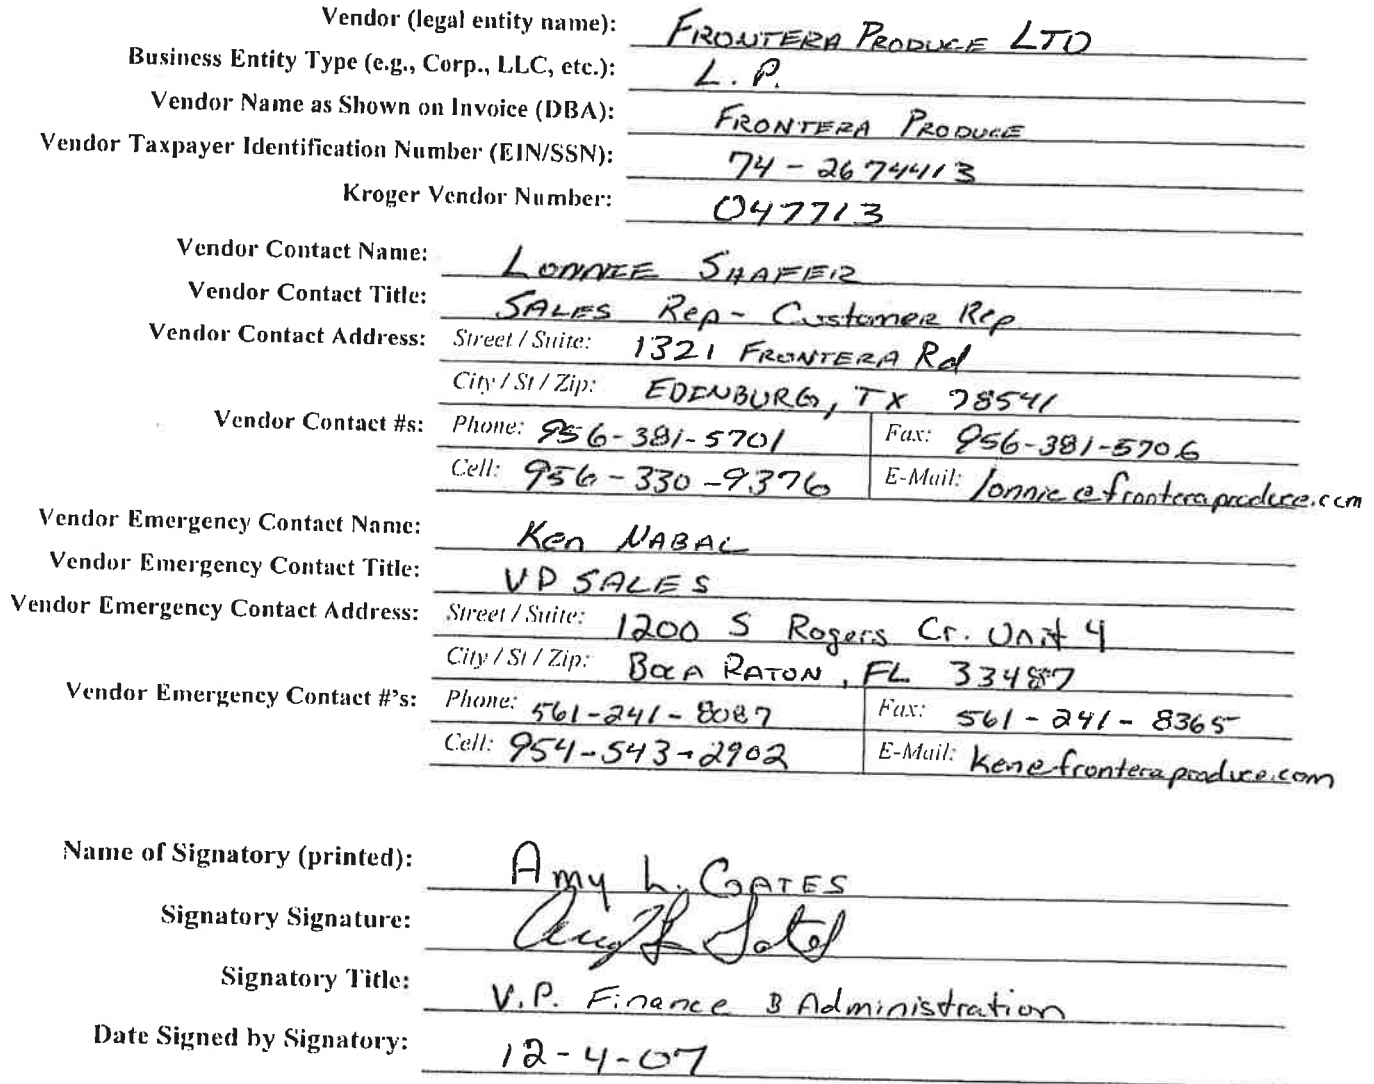 Vendor (legal entity name): FRONTERA PRODUCE LTD
Business Entity Type (e.g., Corp., LLC, etc.): L.P.
Vendor Name as Shown on Invoice (DBA): FRONTERA PRODUCE
Vendor Taxpayer Identification Number (EIN/SSN): 74-2674413
Kroger Vendor Number: 047713
Vendor Contact Name: LONNIE SHAFER
Vendor Contact Title: SALES Rep- Customer Rep
Vendor Contact Address: Street / Suite: 1321 FRONTERA Rd
City / St / Zip: EDINBURG, TX 78541
Vendor Contact #s: Phone: 956-381-5701 Fax: 956-381-5706
Cell: 956-330-9376 E-Mail: lonnie@fronteraproduce.com
Vendor Emergency Contact Name: Ken NABAL
Vendor Emergency Contact Title: VP SALES
Vendor Emergency Contact Address: Street / Suite: 1200 S Rogers Cr. Unit 4
City / St / Zip: BOCA RATON, FL 33487
Vendor Emergency Contact #'s: Phone: 561-241-8087 Fax: 561-241-8365
Cell: 954-543-2902 E-Mail: ken@fronteraproduce.com
Name of Signatory (printed): Amy L. GATES
Signatory Signature: Amy L Gates
Signatory Title: V.P. Finance & Administration
Date Signed by Signatory: 12-4-07